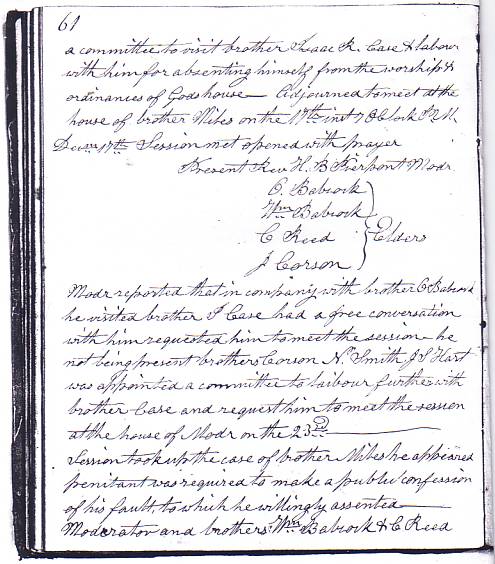 61
a committee to visit brother Isaac R. Case & labour
with him for absenting himself from the worship &
ordinances of Gods house— Adjourned to meet at the
house of brother Miles on the 17th inst 7 Oclock P.M.
Decm 17th Session met opened with prayer
Present Rev H. B Pierpont Modr
O. Babcock
Wm Babcock
C Reed } Elders
J Corson
Modr reported that in company with brother O Babcock
he visited brother I Case had a free conversation
with him requested him to meet the session — he
not being present brothers Corson N. Smith J S Hart
was appointed a committee to laibour further with
brother Case and request him to meet the session
at the house of Modr on the 23d
Session took up the case of brother Miles he appeared
penitant was required to make a public confession
of his fault, to which he willingly assented
Moderator and brothers Wm Babcock & C Reed